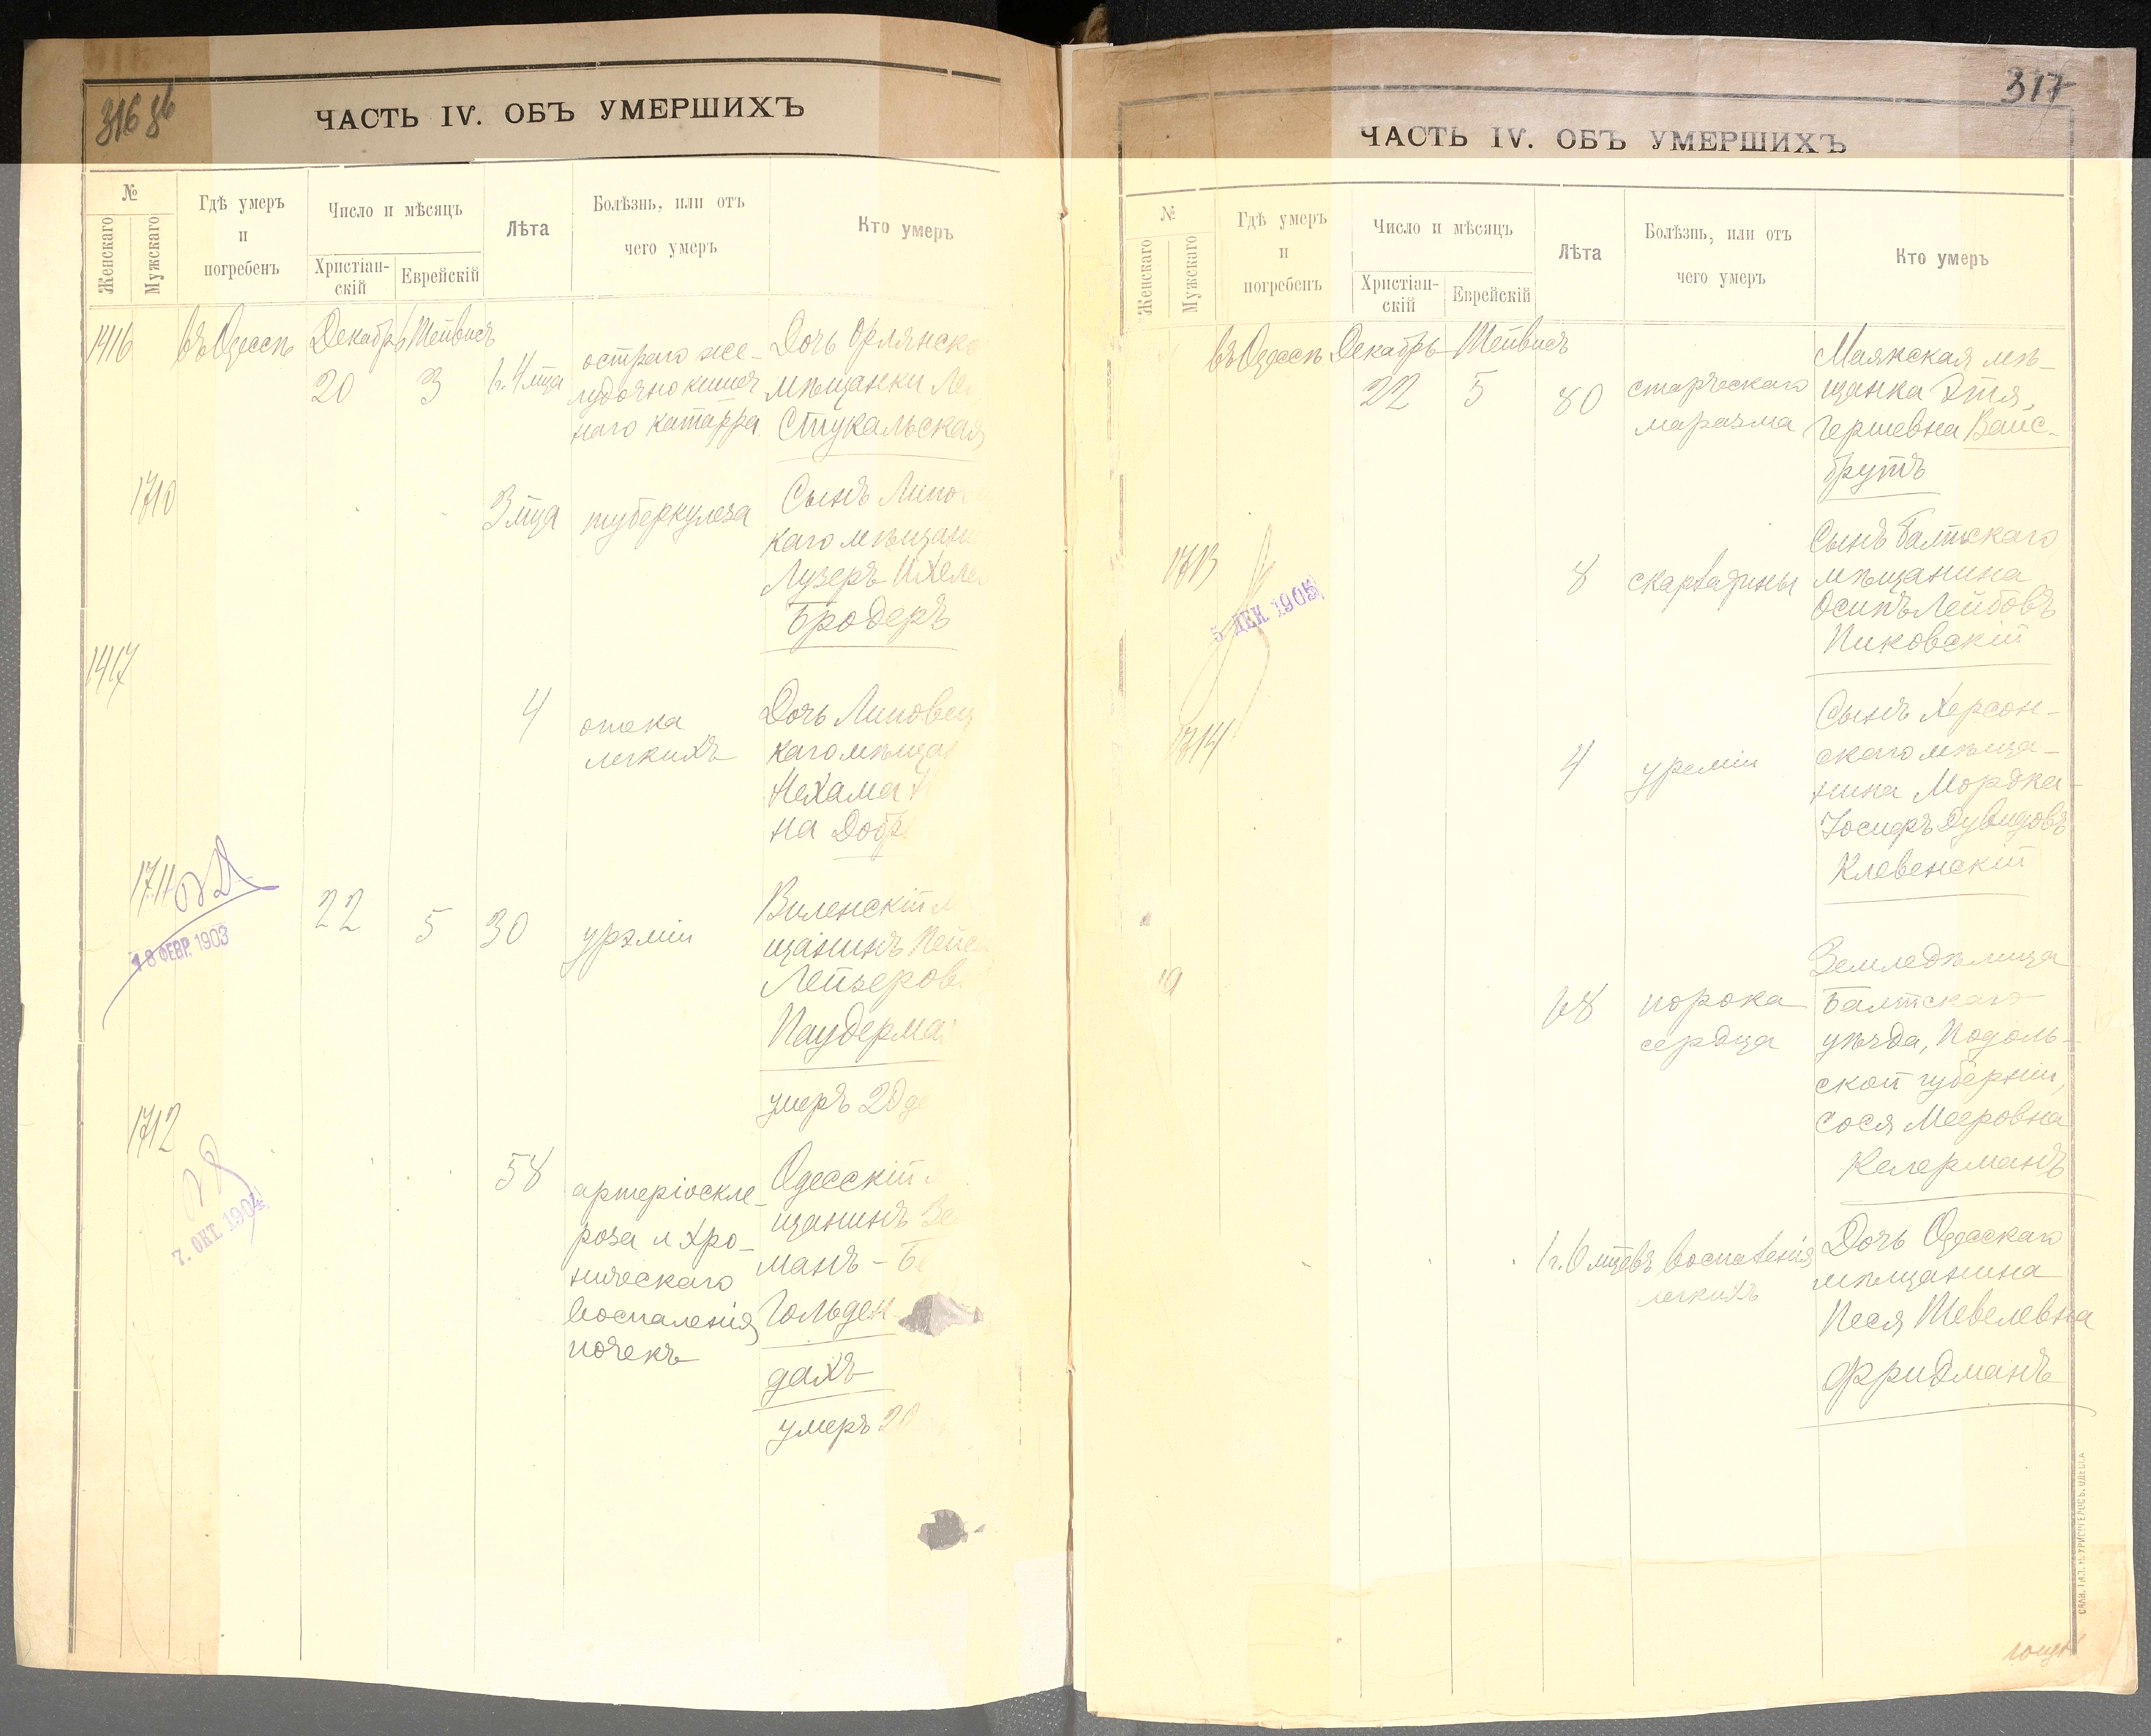 316 об
ЧАСТЬ IV. ОБЪ УМЕРШИХЪ
№
Женскаго
Мужскаго
Гдѣ умеръ
и
погребенъ
Число и мѣсяцъ
Христіан-
скій
Еврейскій
Лѣта
Болѣзнь, или отъ
чего умеръ
Кто умеръ
1416
въ Одессѣ
Декабрь
20
Тейвисъ
3
1 г. 4 мца
остраго же-
лудочно кишеч
наго катарра
Дочь Орлянско
мѣщанки
Стукальская
1710
3 мца
туберкулеза
Сынъ Липо
каго мѣщани
Лузеръ Ихеле
Бродеръ
1417
4
отека
легкихъ
Дочь Липовец
каго мѣща
Нехама
на Добр
1711
18 ФЕВР. 1903
22
5
30
урэміи
Виленскій м
щанинъ Пейс
Лейзеров
Паудерма
умеръ 20 де
1712
7. ОКТ. 1904
58
артеріоскле-
роза и хро-
ническаго
воспаленія
почекъ
Одесскій
щанинъ
манъ - Бе
Гольден
дахъ
умеръ 20
317
ЧАСТЬ IV. ОБЪ УМЕРШИХЪ
№
Женскаго
Мужскаго
Гдѣ умеръ
и
погребенъ
Число и мѣсяцъ
Христіан-
скій
Еврейскій
Лѣта
Болѣзнь, или отъ
чего умеръ
Кто умеръ
въ Одессѣ
Декабрь
22
Тейвисъ
5
80
старческаго
маразма
Маякская мѣ-
щанка Этя
Гершевна Вайс-
брутъ
1713
5 ДЕК 1905
8
скарлатины
Сынъ Балтскаго
мѣщанина
Осипъ Лейбовъ
Пиковскій
1714
4
уреміи
Сынъ Херсон-
скаго мѣща-
нина Мордка-
Іосифъ Дувидовъ
Клевенскій
19
68
порока
сердца
Земледѣлица
Балтскаго
уѣзда, Подоль-
ской губерніи,
Сося Мееровна
Келерманъ
1 г. 6 мцевъ
воспаленія
легкихъ
Дочь Одесскаго
мѣщанина
Песя Шевелевна
Фридманъ